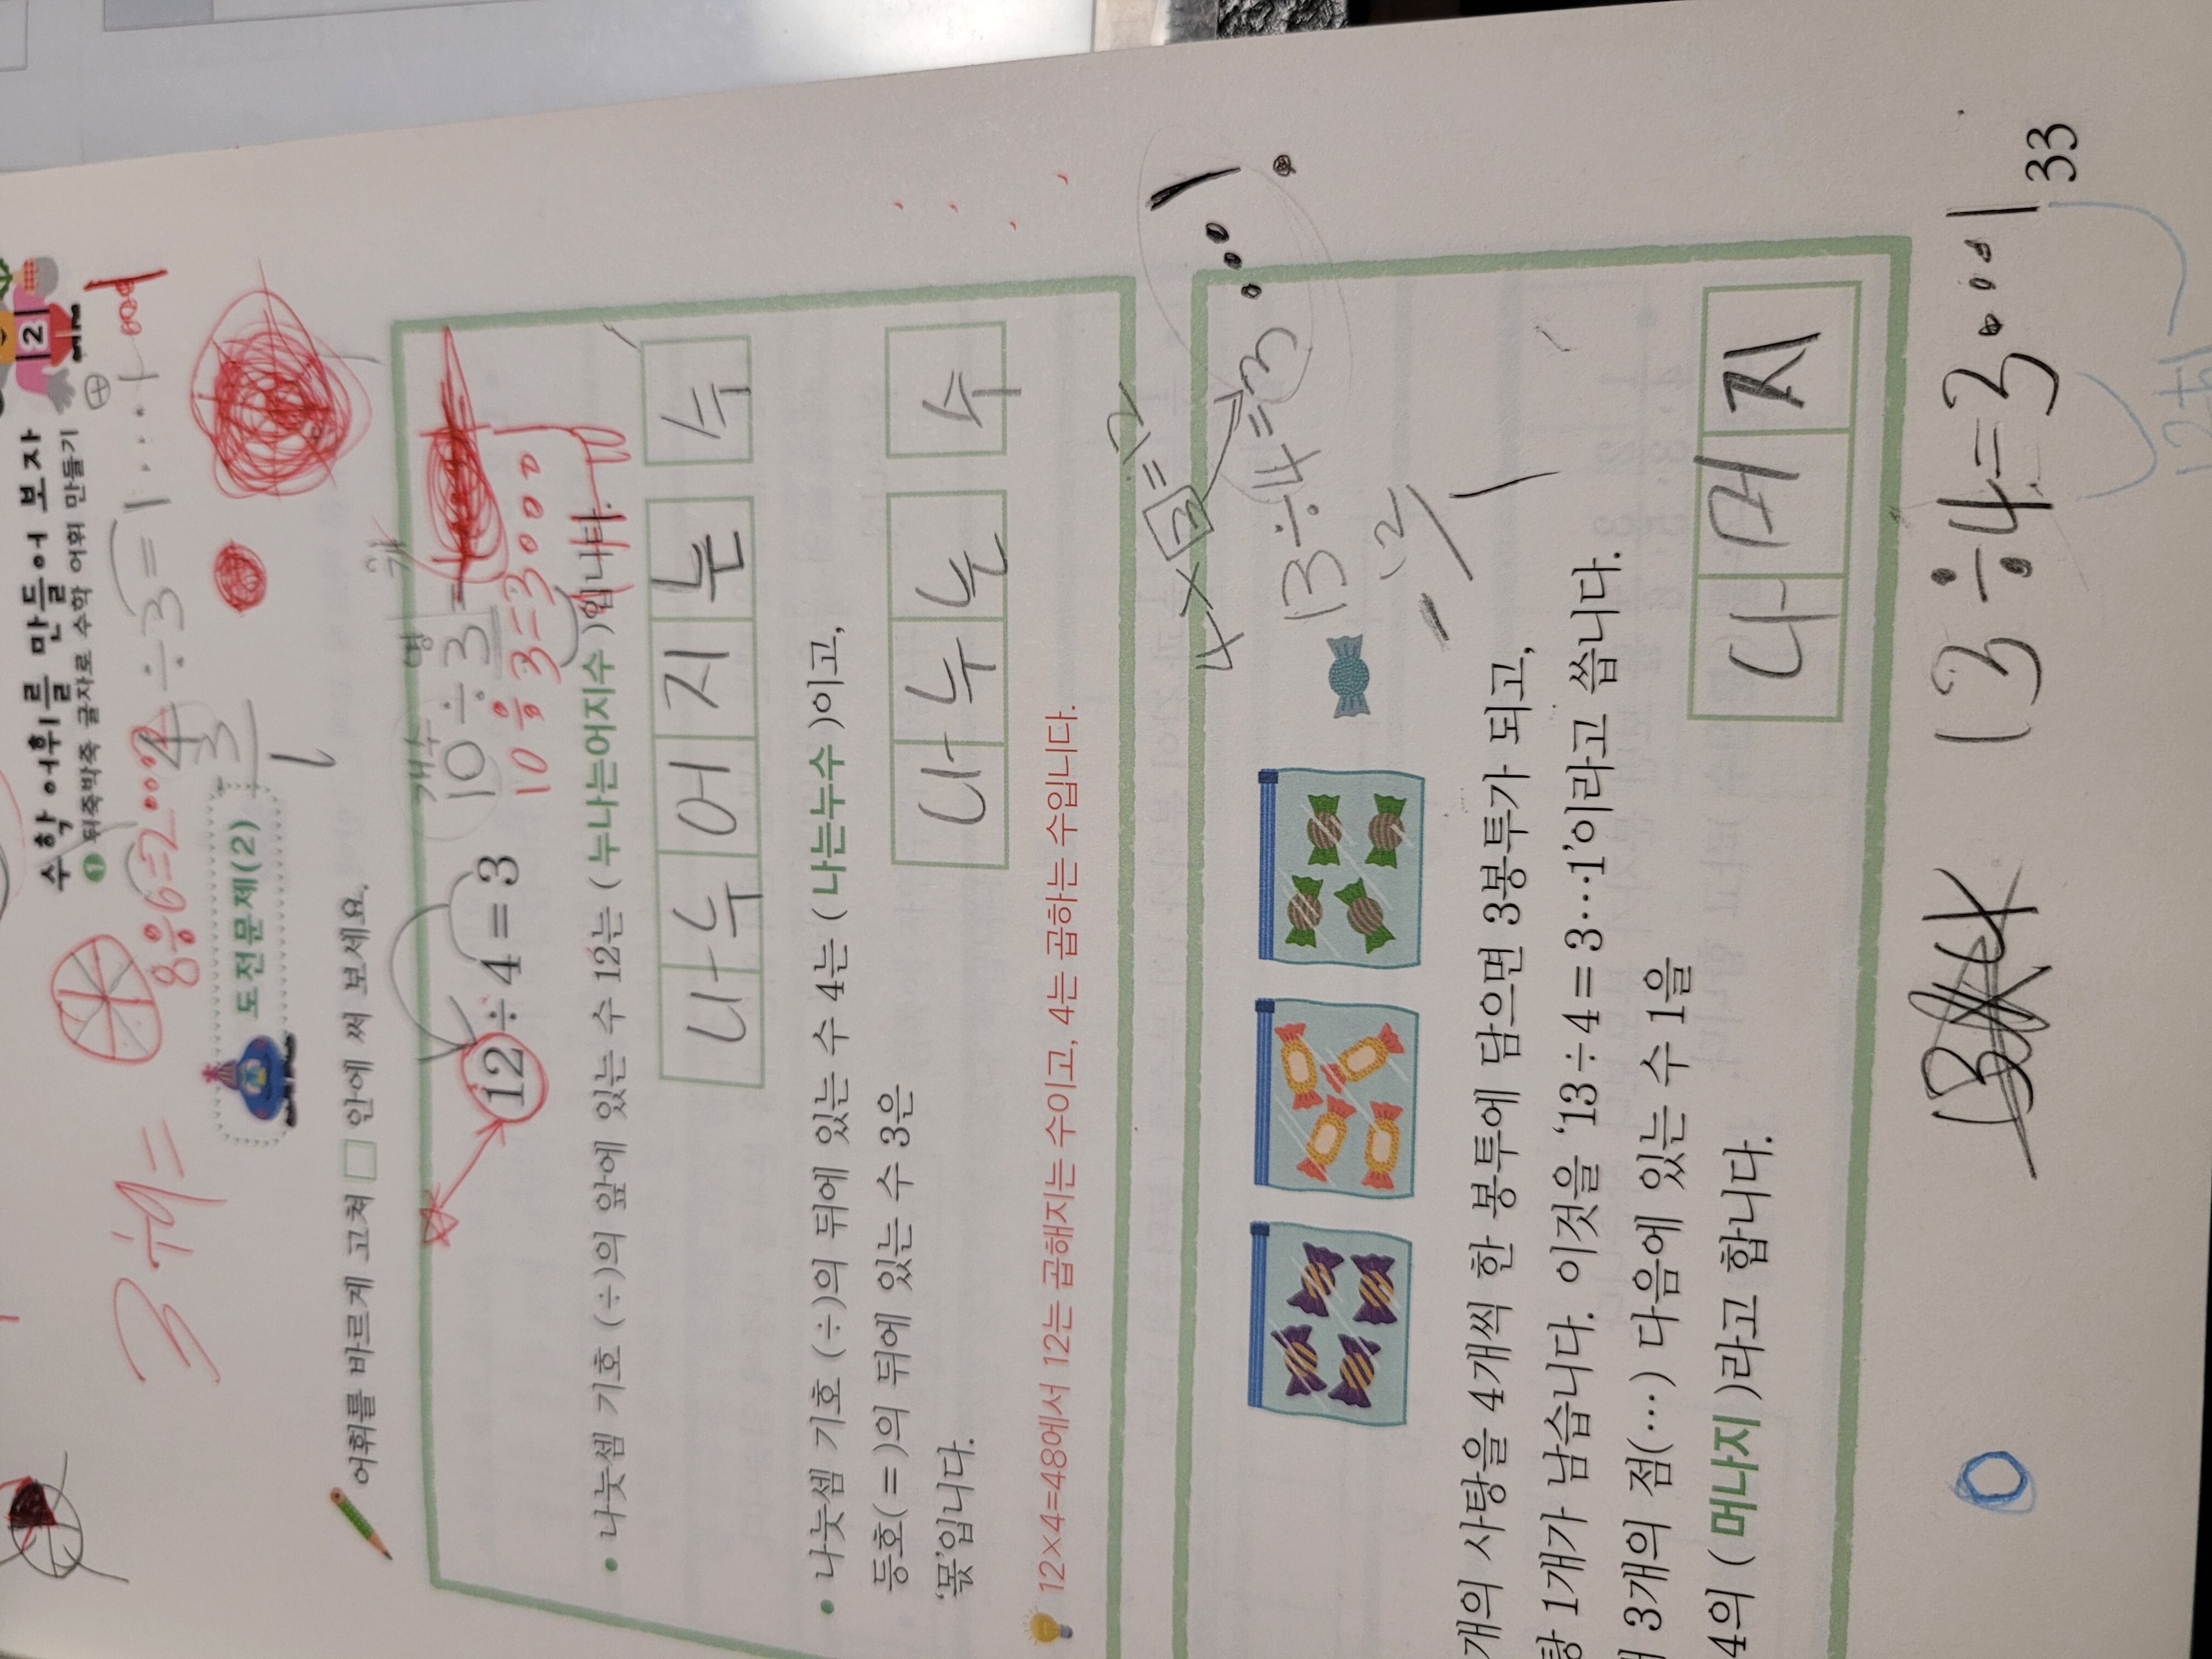 2
수학 어휘를 만들어 보자
1 뒤죽박죽 글자로 수학 어휘 만들기
3÷9=
8÷6=2...2
4÷3=1...1
3
1
도전문제(2)
어휘를 바르게 고쳐 □ 안에 써 보세요.
개수 명 개
10÷3=
10÷3=3...
12÷4=3
• 나눗셈 기호 (÷)의 앞에 있는 수 12는 ( 누나는어지수 )입니다.
나누어지는 수
• 나눗셈 기호 (÷)의 뒤에 있는 수 4는 ( 나는누수 )이고,
등호( = )의 뒤에 있는 수 3은
나누는 수
‘몫’입니다.
12×4=48에서 12는 곱해지는 수이고, 4는 곱하는 수입니다.
4×3=12
13÷4=3...1
-12
1
개의 사탕을 4개씩 한 봉투에 담으면 3봉투가 되고,
탕 1개가 남습니다. 이것을 ‘13÷4=3…1’이라고 씁니다.
3개의 점(…) 다음에 있는 수 1을
4의 ( 머나지 )라고 합니다.
나머지
13÷4=3...1
33
12+1